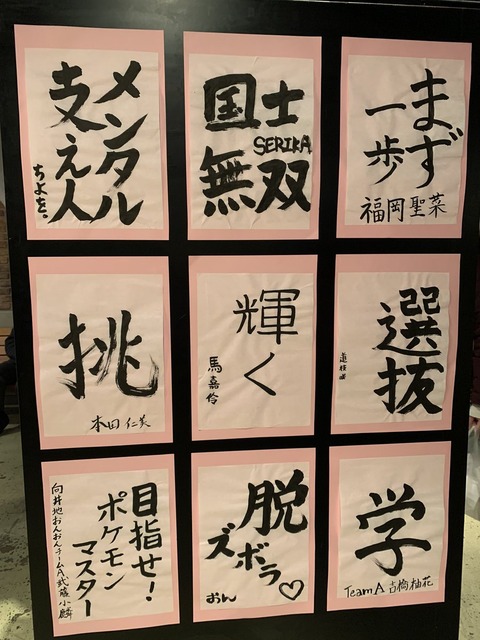 まず
一歩
福岡聖菜
国士
無双
SERIKA
メンタル
支え人
ちよを。
選
抜
道枝咲
輝く
馬嘉伶
挑
本田仁美
学
TeamA 吉橋柚花
脱
ズボラ♡
おん
目指せ!
ポケモン
マスター
向井地おんおんチームA武藤小麟